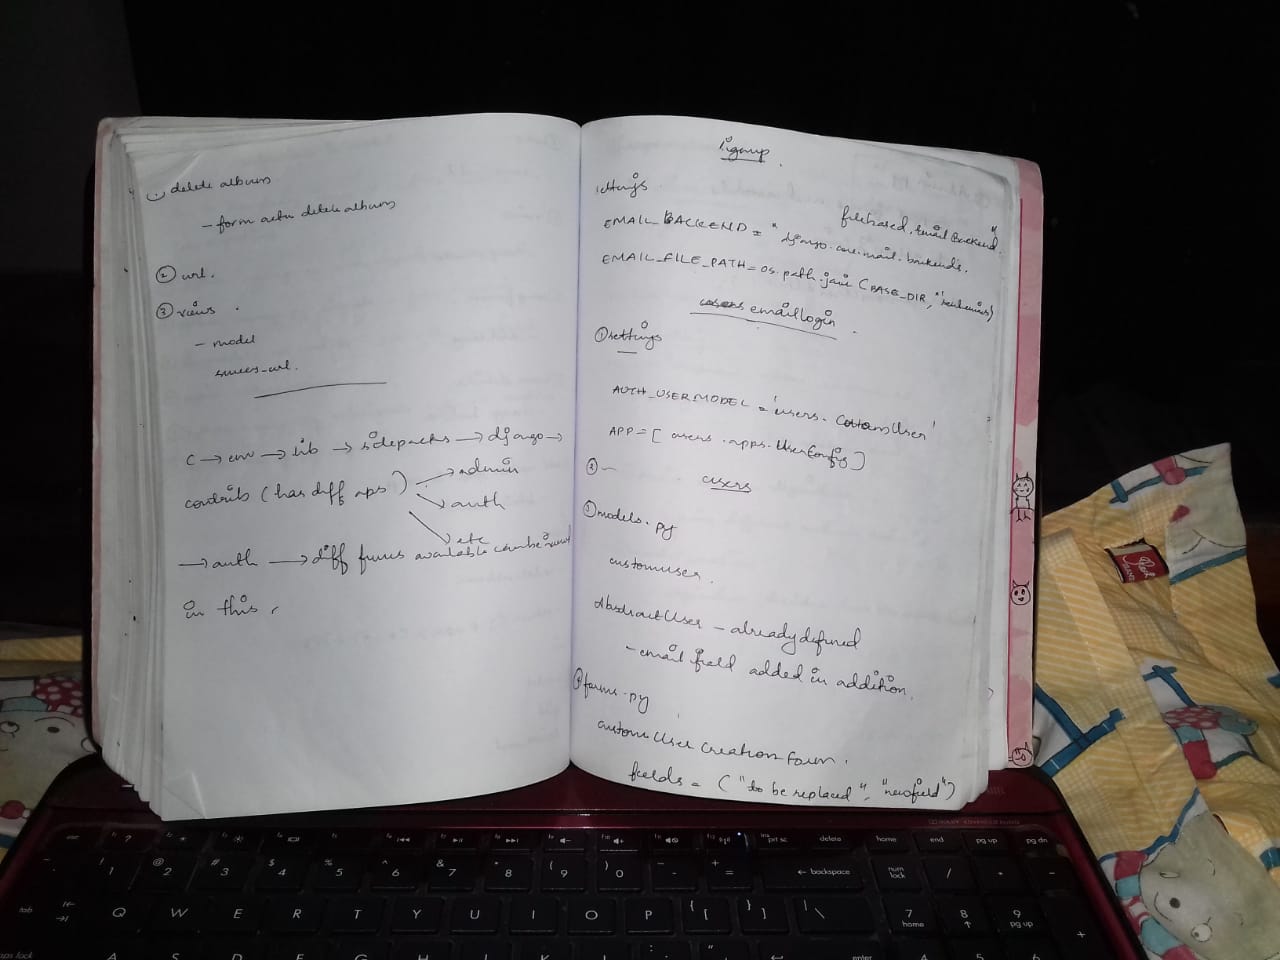 delete albums
- form actn delete albums
② url.
③ views.
- model
success_url.
C → env → lib → sitepacks → django →
contrib (has diff aps) → admin
→ auth
→ etc
→ auth → diff funcs available can be
in this.
signup.
settings.
filebased.EmailBackend"
EMAIL_BACKEND = "django.core.mail.backends.
EMAIL_FILE_PATH = os.path.join(BASE_DIR, "
email login.
① settings
AUTH_USERMODEL = 'users.CustomUser'
APP = [users.apps.UserConfig]
② -
users
① models.py
customuser.
AbstractUser - already defined
- email field added in addition.
forms.py
custom User Creation Form.
fields = ("to be replaced", "newfield")
f1 ? f2 f3 f4 f5 f6 f7 f8 f9 f10 f11 f12 prt sc delete home end pg up pg dn
! 1 @ 2 # 3 $ 4 % 5 ^ 6 & 7 * 8 ( 9 ) 0 - + = ← backspace num lock / * -
tab Q W E R T Y U I O P { [ } ] | \ 7 home 8 ↑ 9 pg up +
caps lock A S D F G H J K L : ; " enter 4 5 6